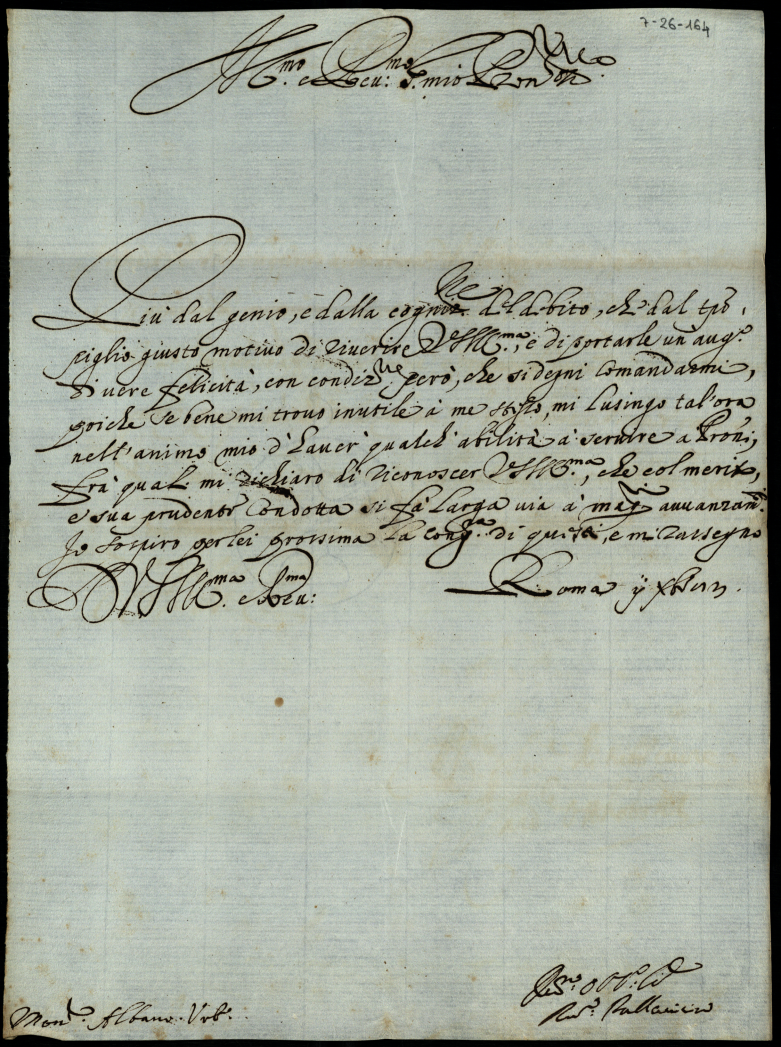 7-26-164
Ill.mo e Reu: S. mio Pron
Più dal genio, e dalla cogniz.ne del debito, che dal
giusto motivo di riverire VSIll.ma, e di portarle un aug.o
di vere felicità, con condiz.ne però, che si degni comandarmi,
poiche se bene mi trovo inutile à me stesso, mi lusingo tal'ora
nell'animo mio d'haver qualch'abilità à servire a Proni,
frà quali mi dichiaro di riconoscer VSIll.ma, che col merito,
e sua prudente condotta si fà larga via à mag.ri avvanzam.
Io sospiro per lei prossima la cong.ra di questi, e mi rassegno
D VSIll.ma e R.ma Reu: Roma
Mons.r Albano Urb.o